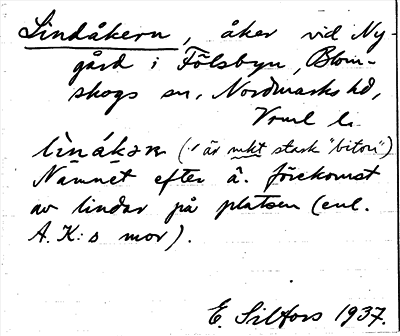 Lindåkern, åker vid Ny-
gård i Fölsbyn, Blom-
skogs sn, Nordmarks hd,
Vrml l.
lìnákəɴ (ˊ är mkt stark "biton")
Namnet efter å. förekomst
av lindar på platsen (enl.
A.K:s mor).
E. Silfors 1937.